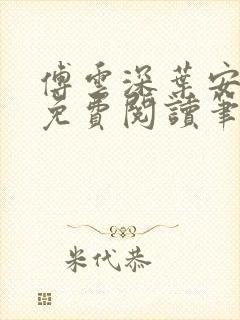 傅雲深葉安
免費閱讀筆
米代恭